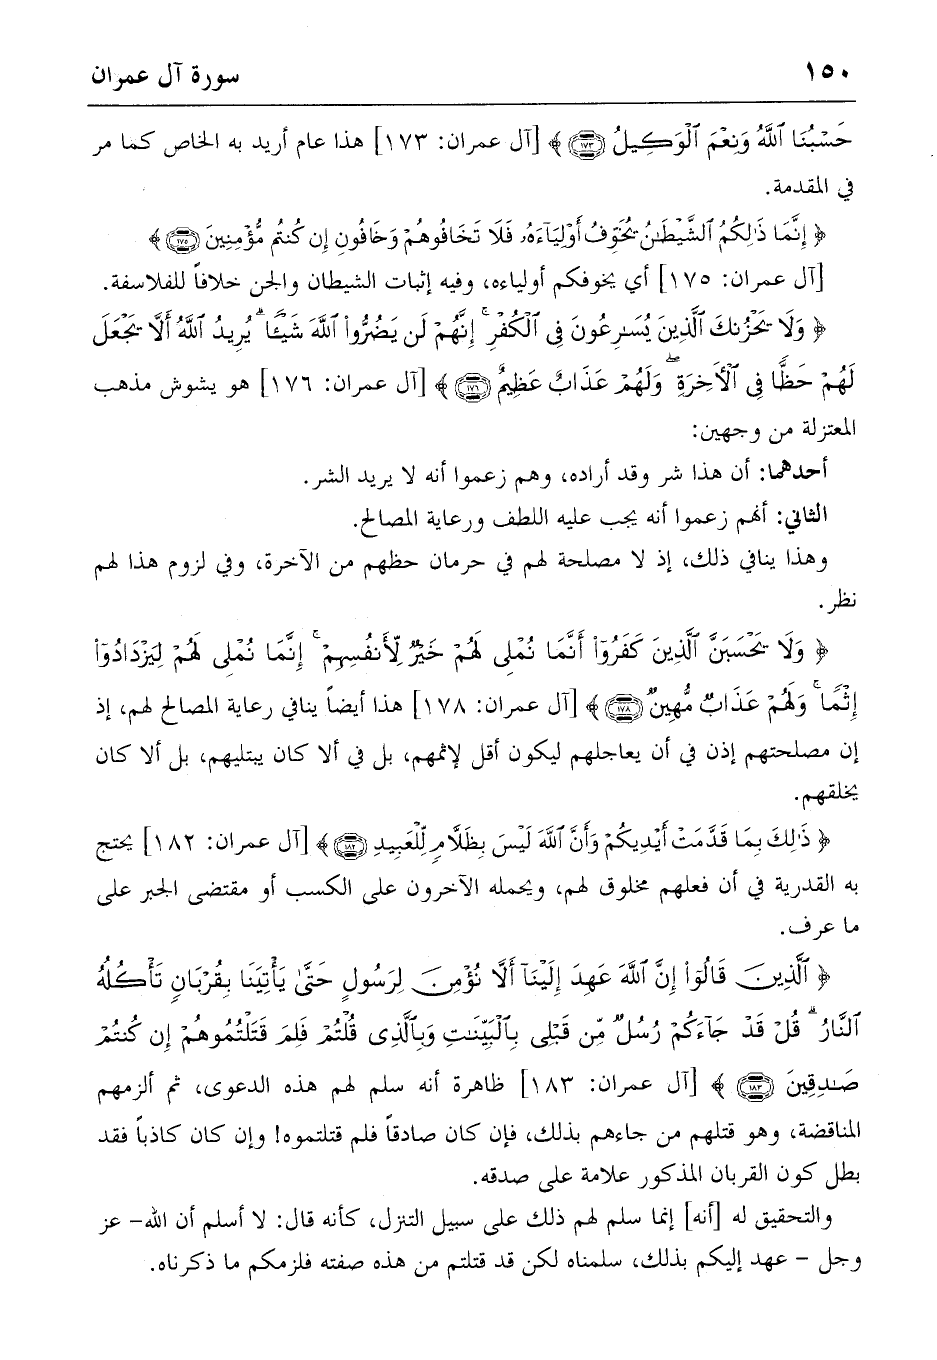 ١٥٠ سورة آل عمران
حَسْبُنَا ٱللَّهُ وَنِعْمَ ٱلْوَكِيلُ ﴿١٧٣﴾ ﴾ [آل عمران: ١٧٣] هذا عام أريد به الخاص كما مر
في المقدمة.
﴿ إِنَّمَا ذَٰلِكُمُ ٱلشَّيْطَٰنُ يُخَوِّفُ أَوْلِيَآءَهُۥ فَلَا تَخَافُوهُمْ وَخَافُونِ إِن كُنتُم مُّؤْمِنِينَ ﴿١٧٥﴾ ﴾
[آل عمران: ١٧٥] أي يخوفكم أولياءه، وفيه إثبات الشيطان والجن خلافاً للفلاسفة.
﴿ وَلَا يَحْزُنكَ ٱلَّذِينَ يُسَٰرِعُونَ فِي ٱلْكُفْرِ ۚ إِنَّهُمْ لَن يَضُرُّوا۟ ٱللَّهَ شَيْـًٔا ۗ يُرِيدُ ٱللَّهُ أَلَّا يَجْعَلَ
لَهُمْ حَظًّا فِي ٱلْءَاخِرَةِ ۖ وَلَهُمْ عَذَابٌ عَظِيمٌ ﴿١٧٦﴾ ﴾ [آل عمران: ١٧٦] هو يشوش مذهب
المعتزلة من وجهين:
أحدهما: أن هذا شر وقد أراده، وهم زعموا أنه لا يريد الشر.
الثاني: أنهم زعموا أنه يجب عليه اللطف ورعاية المصالح.
وهذا ينافي ذلك، إذ لا مصلحة لهم في حرمان حظهم من الآخرة، وفي لزوم هذا لهم
نظر.
﴿ وَلَا يَحْسَبَنَّ ٱلَّذِينَ كَفَرُوٓا۟ أَنَّمَا نُمْلِي لَهُمْ خَيْرٌ لِّأَنفُسِهِمْ ۚ إِنَّمَا نُمْلِي لَهُمْ لِيَزْدَادُوٓا۟
إِثْمًا ۚ وَلَهُمْ عَذَابٌ مُّهِينٌ ﴿١٧٨﴾ ﴾ [آل عمران: ١٧٨] هذا أيضاً ينافي رعاية المصالح لهم، إذ
إن مصلحتهم إذن في أن يعاجلهم ليكون أقل لإثمهم، بل في ألا كان يبتليهم، بل ألا كان
يخلقهم.
﴿ ذَٰلِكَ بِمَا قَدَّمَتْ أَيْدِيكُمْ وَأَنَّ ٱللَّهَ لَيْسَ بِظَلَّامٍ لِّلْعَبِيدِ ﴿١٨٢﴾ ﴾ [آل عمران: ١٨٢] يحتج
به القدرية في أن فعلهم مخلوق لهم، ويحمله الآخرون على الكسب أو مقتضى الجبر على
ما عرف.
﴿ ٱلَّذِينَ قَالُوٓا۟ إِنَّ ٱللَّهَ عَهِدَ إِلَيْنَآ أَلَّا نُؤْمِنَ لِرَسُولٍ حَتَّىٰ يَأْتِيَنَا بِقُرْبَانٍ تَأْكُلُهُ
ٱلنَّارُ ۗ قُلْ قَدْ جَآءَكُمْ رُسُلٌ مِّن قَبْلِي بِٱلْبَيِّنَٰتِ وَبِٱلَّذِي قُلْتُمْ فَلِمَ قَتَلْتُمُوهُمْ إِن كُنتُمْ
صَٰدِقِينَ ﴿١٨٣﴾ ﴾ [آل عمران: ١٨٣] ظاهرة أنه سلم لهم هذه الدعوى، ثم ألزمهم
المناقضة، وهو قتلهم من جاءهم بذلك، فإن كان صادقاً فلم قتلتموه! وإن كان كاذباً فقد
بطل كون القربان المذكور علامة على صدقه.
والتحقيق له [أنه] إنما سلم لهم ذلك على سبيل التنزل، كأنه قال: لا أسلم أن الله- عز
وجل - عهد إليكم بذلك، سلمناه لكن قد قتلتم من هذه صفته فلزمكم ما ذكرناه.